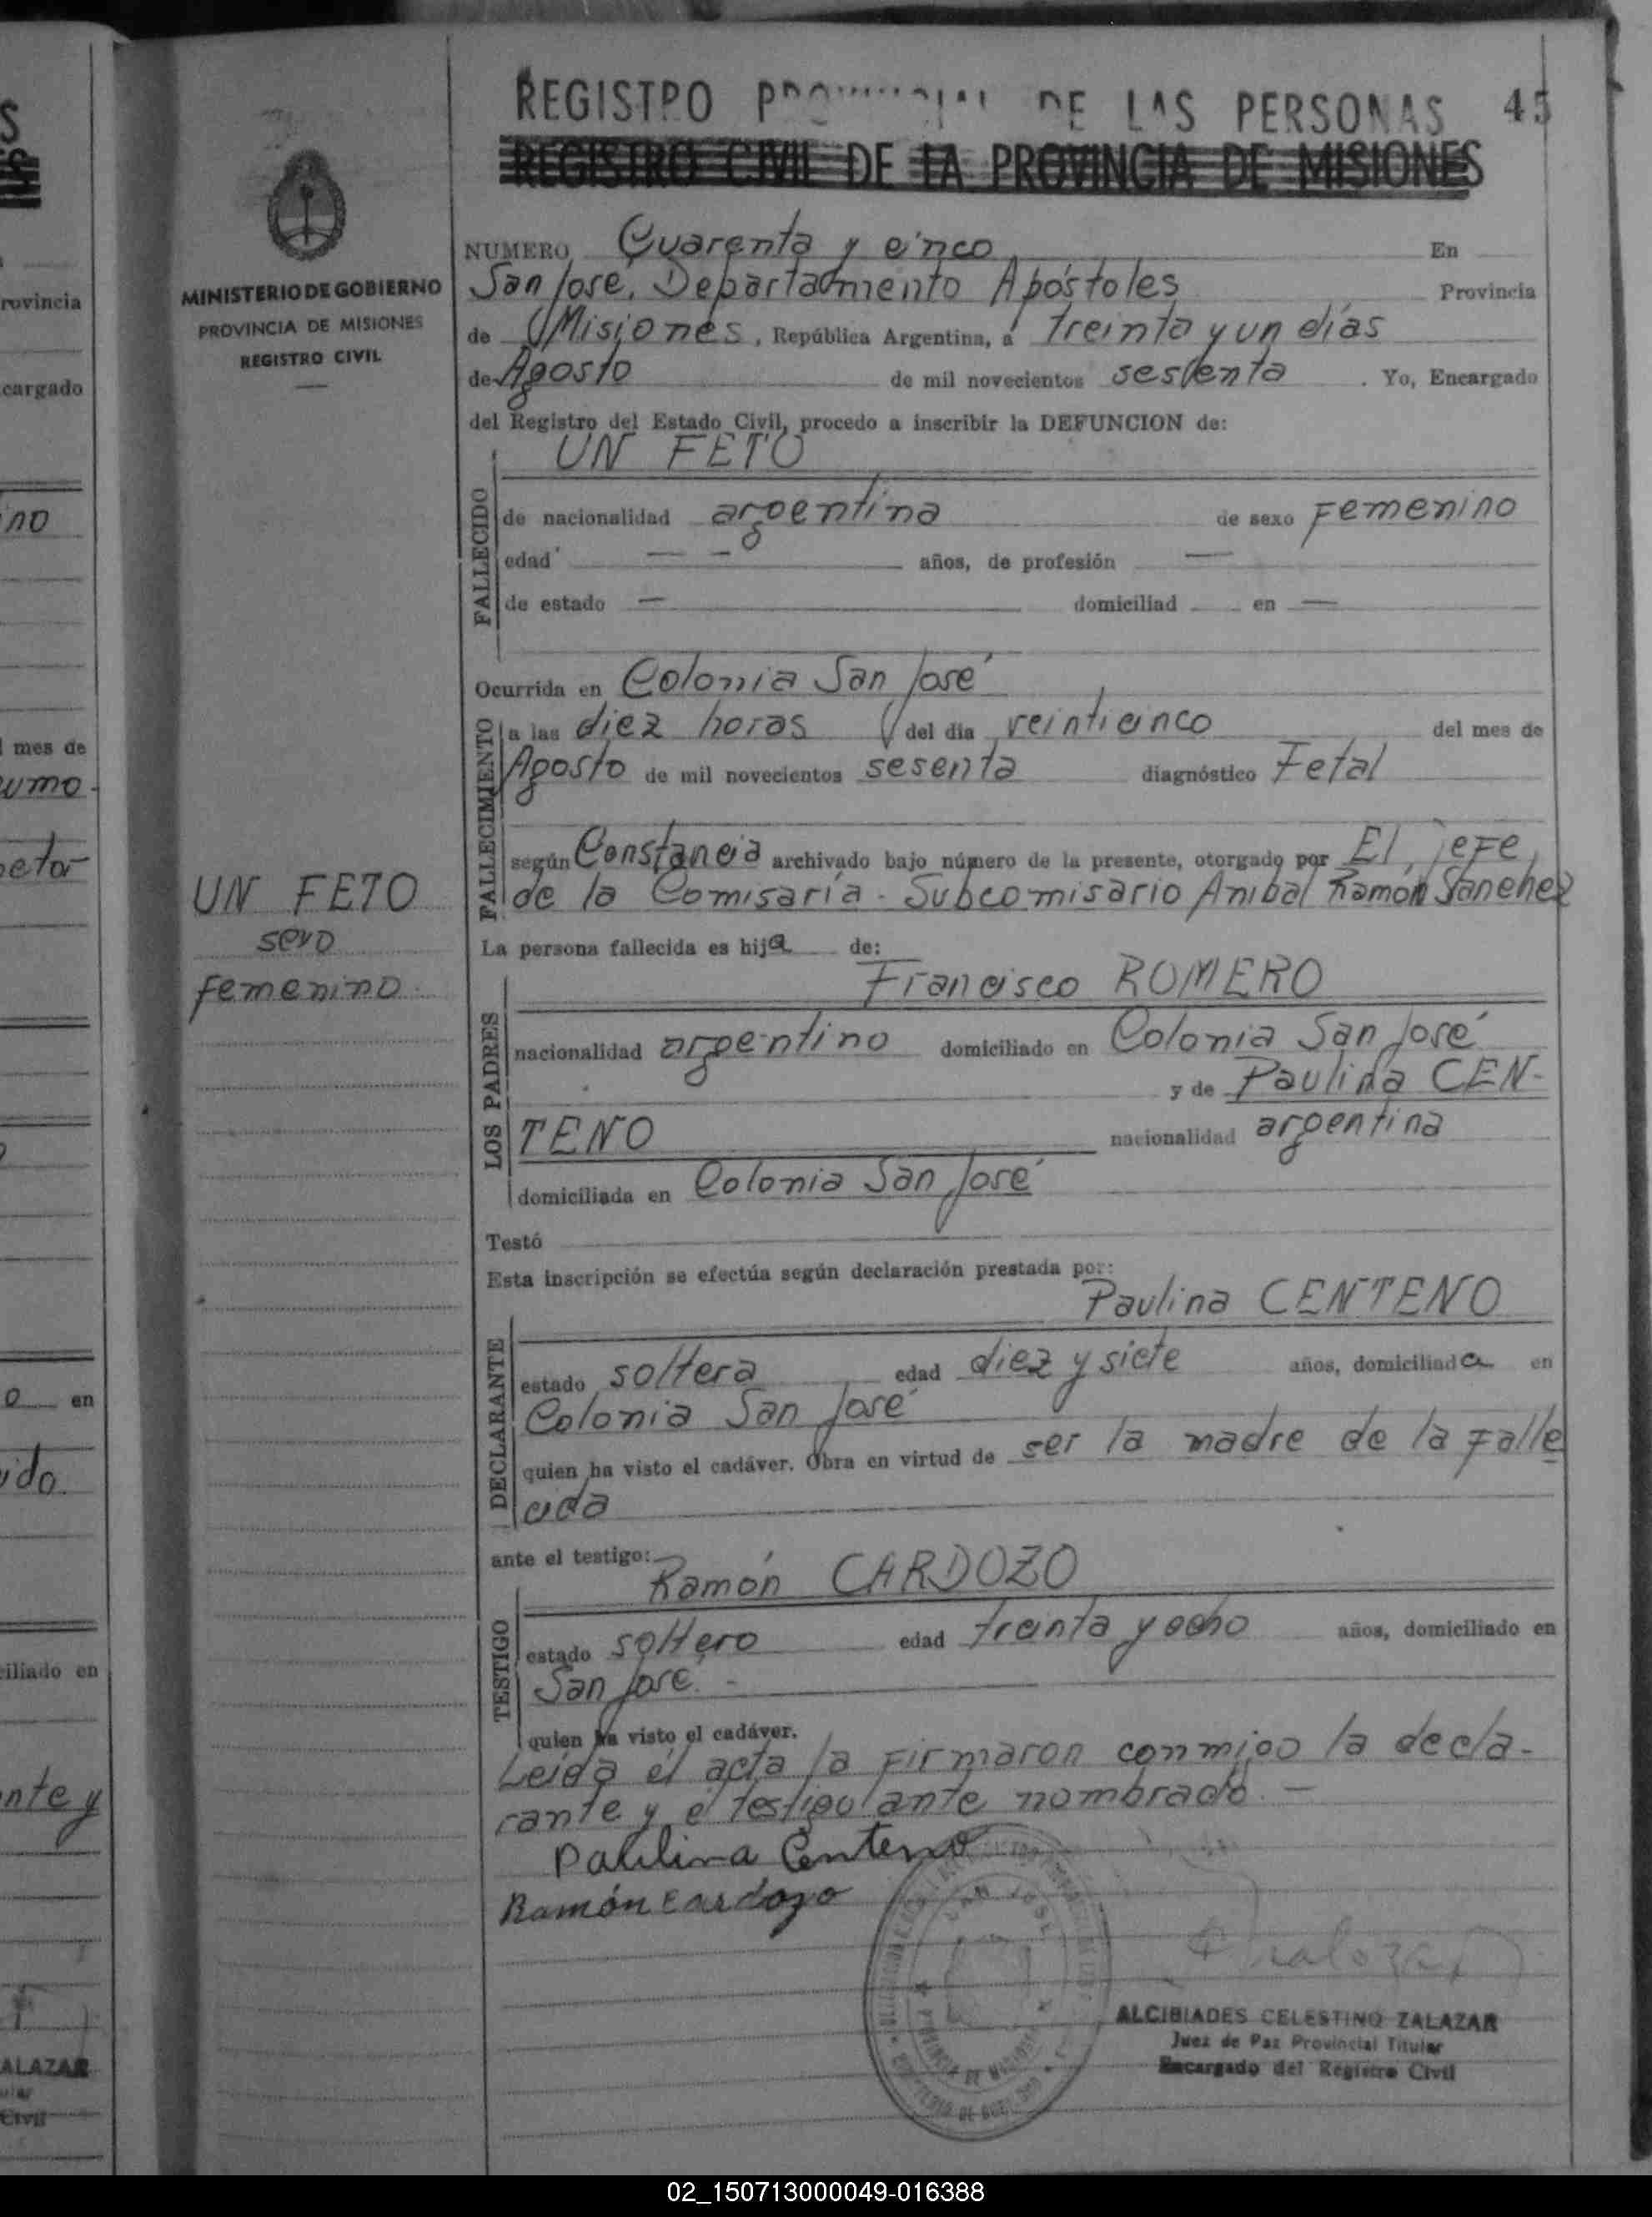 REGISTRO PROVINCIAL DE LAS PERSONAS 45
REGISTRO CIVIL DE LA PROVINCIA DE MISIONES
MINISTERIO DE GOBIERNO
PROVINCIA DE MISIONES
REGISTRO CIVIL
NUMERO Cuarenta y cinco En
San José, Departamento Apóstoles Provincia
de Misiones, República Argentina, a treinta y un días
de Agosto de mil novecientos sesenta. Yo, Encargado
del Registro del Estado Civil, procedo a inscribir la DEFUNCION de:
UN FETO
FALLECIDO
de nacionalidad argentina de sexo Femenino
edad — — años, de profesión —
de estado — domiciliad en —
Ocurrida en Colonia San José
FALLECIMIENTO
a las diez horas del dia veinticinco del mes de
Agosto de mil novecientos sesenta diagnóstico Fetal
según Constancia archivado bajo número de la presente, otorgado por El jefe
de la Comisaría - Subcomisario Anibal Ramón Sanchez
UN FETO
sexo
femenino.
La persona fallecida es hija de:
Francisco ROMERO
LOS PADRES
nacionalidad argentino domiciliado en Colonia San José
y de Paulina CEN-
TENO nacionalidad argentina
domiciliada en Colonia San José
Testó
Esta inscripción se efectúa según declaración prestada por:
Paulina CENTENO
DECLARANTE
estado soltera edad diez y siete años, domiciliada en
Colonia San José
quien ha visto el cadáver. Obra en virtud de ser la madre de la falle
cida
ante el testigo:
Ramón CARDOZO
TESTIGO
estado soltero edad treinta y ocho años, domiciliado en
San José. -
quien ha visto el cadáver.
Leída el acta la firmaron conmigo la decla-
rante y el testigo ante nombrado. —
Paulina Centeno
Ramón Cardozo
ALCIBIADES CELESTINO ZALAZAR
Juez de Paz Provincial Titular
Encargado del Registro Civil
02_150713000049-016388